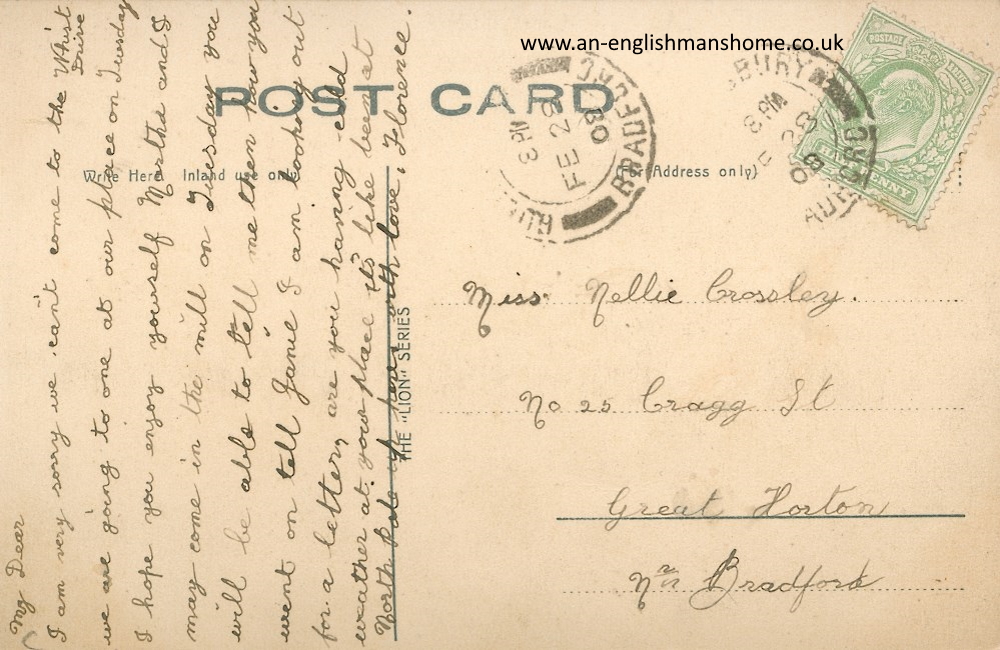 www.an-englishmanshome.co.uk
POST CARD
Write Here Inland use only
(For Address only)
THE "LION" SERIES
POSTAGE
PENNY
BRADFORD
8 PM
FE 28
08
BURY
8 PM
28
08
Miss. Nellie Crossley.
No 25 Cragg St
Great Horton
Nr Bradford
My Dear
I am very sorry we can't come to the Whist Drive
we are going to one at our place on Tuesday
I hope you enjoy yourself Martha and I
may come in the mill on Tuesday you
will be able to tell me then how you
went on tell Janie I am looking out
for a letter, are you having cold
weather at your place it's like being at
North Pole up here with love. Florence.